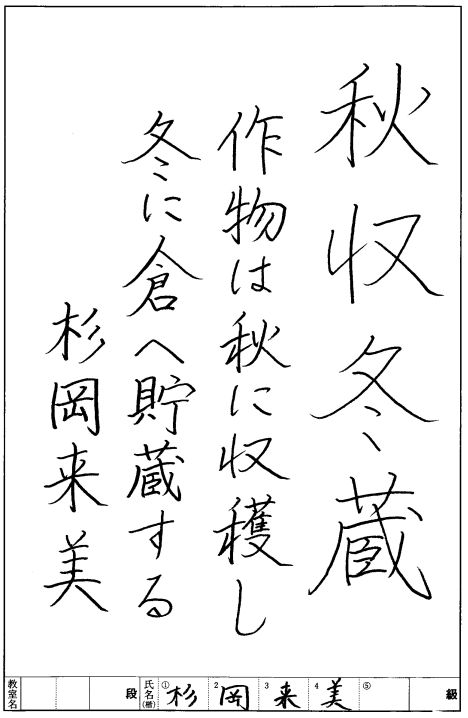 秋収冬蔵
作物は秋に収穫し
冬に倉へ貯蔵する
杉岡来美
教室名 段 氏名(楷) ①杉 2岡 3来 4美 ⑤ 級